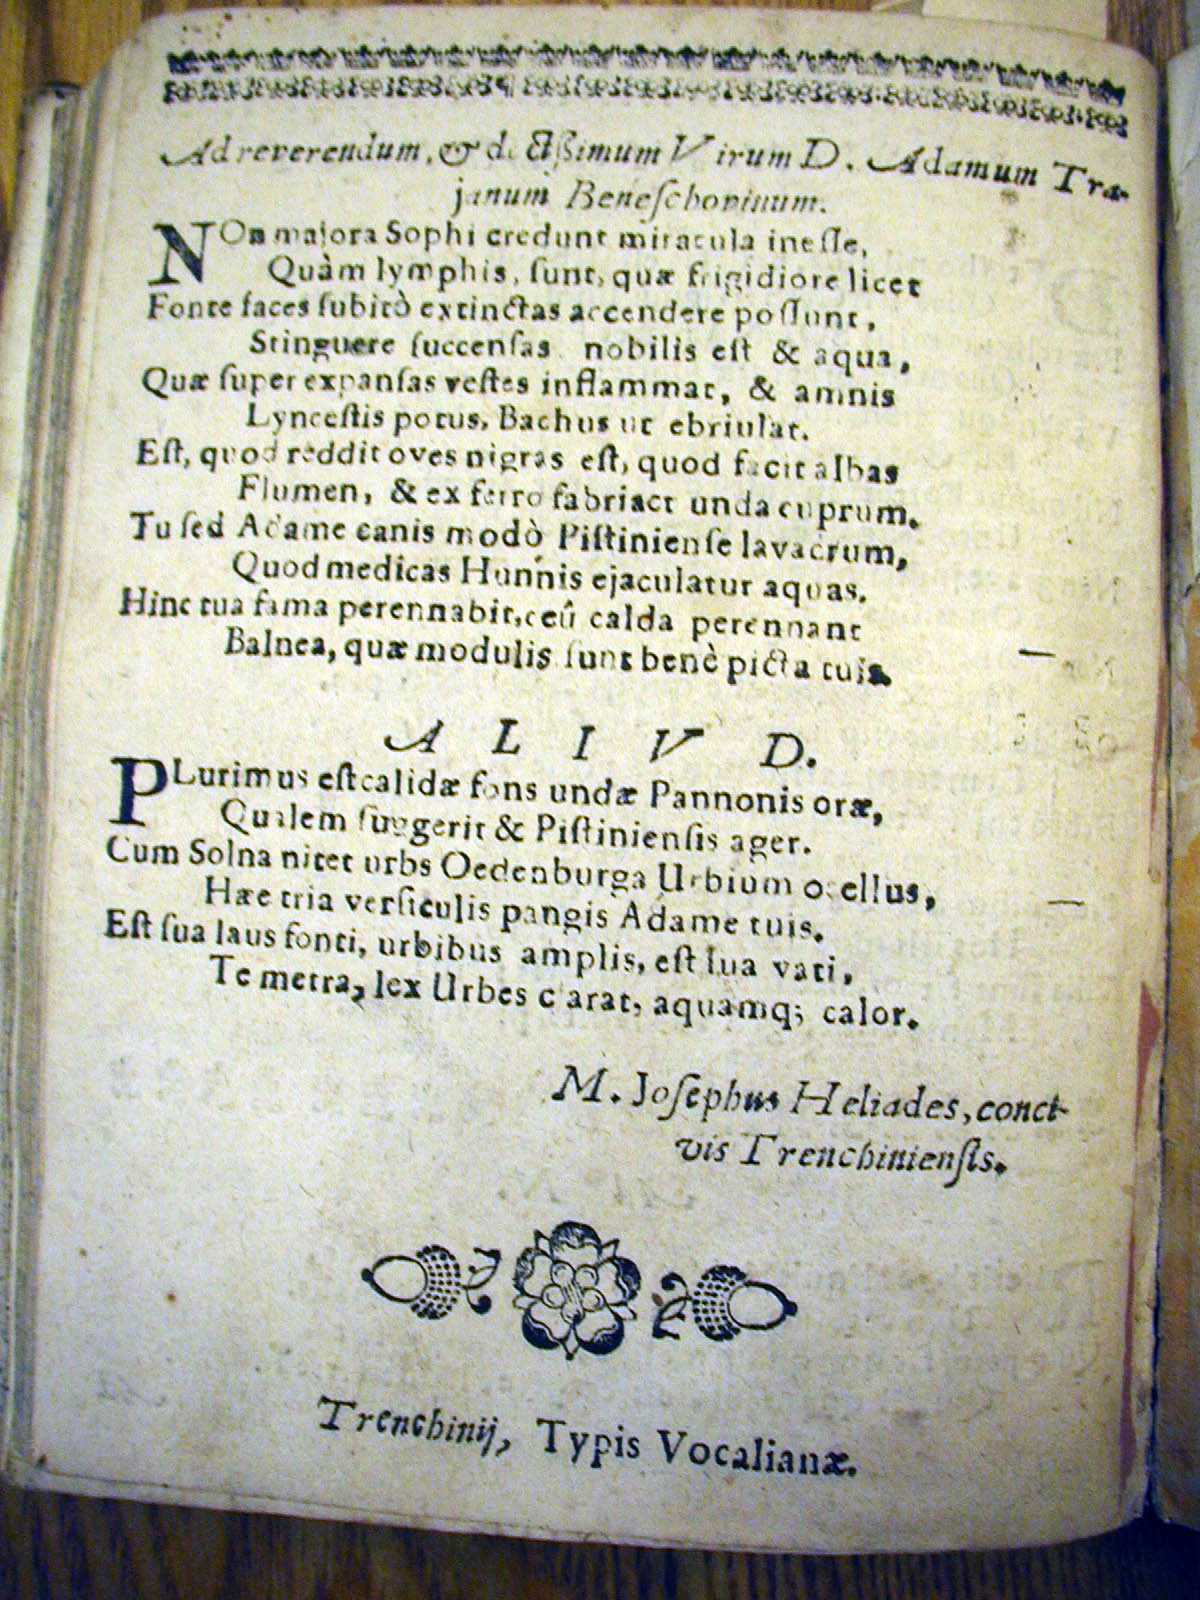 Ad reverendum, & doctissimum Virum D. Adamum Tra-
janum Beneschovinum.
NOn majora Sophi credunt miracula inesse,
Quàm lymphis, sunt, quæ frigidiore licet
Fonte faces subitò extinctas accendere possunt,
Stinguere succensas nobilis est & aqua,
Quæ super expansas vestes inflammat, & amnis
Lyncestis potus, Bachus ut ebriulat.
Est, quod reddit oves nigras est, quod facit albas
Flumen, & ex ferro fabriact unda cuprum.
Tu sed Adame canis modò Pistiniense lavacrum,
Quod medicas Hunnis ejaculatur aquas.
Hinc tua fama perennabit, ceû calda perennant
Balnea, quæ modulis sunt benè picta tuis.
ALIVD.
PLurimus est calidæ fons undæ Pannonis oræ,
Qualem suggerit & Pistiniensis ager.
Cum Solna nitet urbs Oedenburga Urbium ocellus,
Hæc tria versiculis pangis Adame tuis.
Est sua laus fonti, urbibus amplis, est sua vati,
Te metra, lex Urbes clarat, aquamq; calor.
M. Josephus Heliades, conci-
vis Trenchiniensis.
Trenchinij, Typis Vocalianæ.